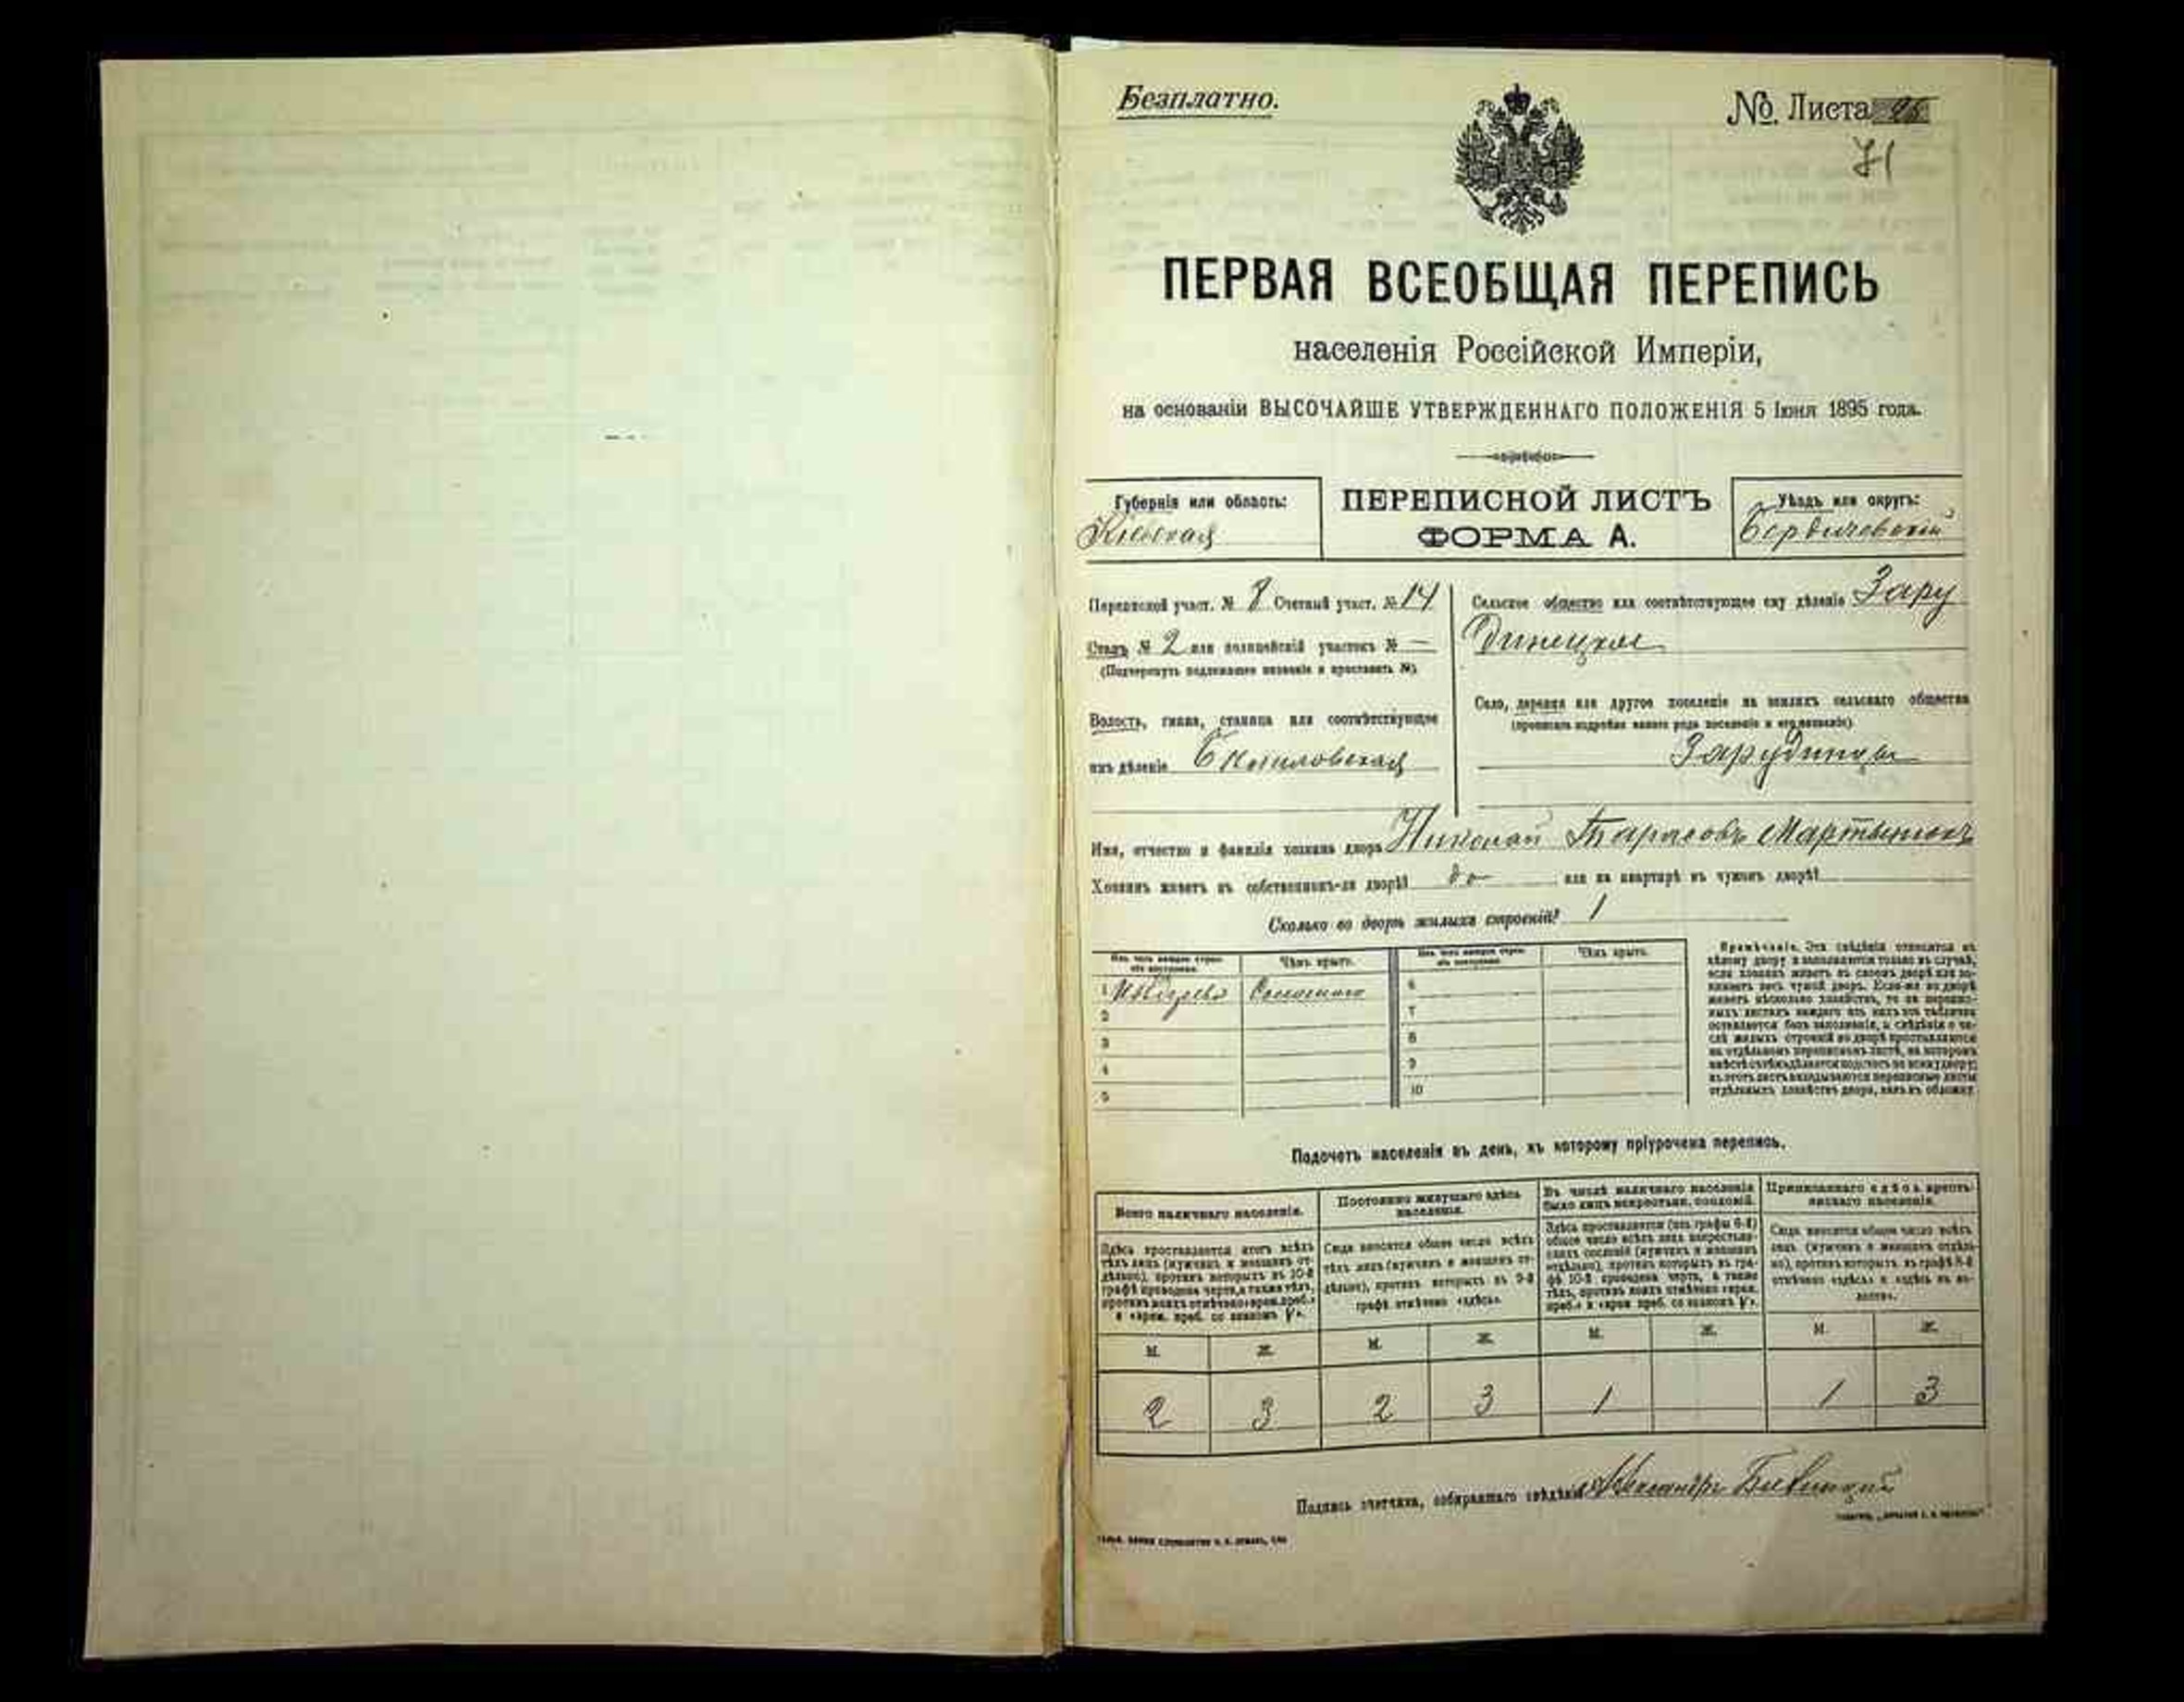 Безплатно.
№ Листа
71
ПЕРВАЯ ВСЕОБЩАЯ ПЕРЕПИСЬ
населенія Россійской Имперіи,
на основаніи ВЫСОЧАЙШЕ УТВЕРЖДЕННАГО ПОЛОЖЕНІЯ 5 Іюня 1895 года.
Губернія или область:
Кіевская
ПЕРЕПИСНОЙ ЛИСТЪ
ФОРМА А.
Уѣздъ или округъ:
Бердичевскій
Переписной участ. № 8 Счетный участ. № 14
Станъ № 2 или полицейскій участокъ № —
(Подчеркнуть подлежащее названіе и проставить №).
Волость, гмина, станица или соотвѣтствующее
имъ дѣленіе
Сельское общество или соотвѣтствующее ему дѣленіе Зару
динецкое
Село, деревня или другое поселеніе на земляхъ сельскаго общества
(прописать подробно какого рода поселеніе и его названіе)
Зарудинцы
Имя, отчество и фамилія хозяина двора Николай Тарасовъ Мартынюкъ
Хозяинъ живетъ въ собственномъ-ли дворѣ? да или на квартирѣ въ чужомъ дворѣ?
Сколько во дворѣ жилыхъ строеній? 1
Изъ чего каждое строеніе построено.
Чѣмъ крыто.
Изъ чего каждое строеніе построено.
Чѣмъ крыто.
1 Изъ дерева Соломою
2
3
4
5
6
7
8
9
10
Примѣчаніе. Эти свѣдѣнія относятся къ
цѣлому двору и заполняются только въ случаѣ,
если хозяинъ живетъ въ своемъ дворѣ или за-
нимаетъ весь чужой дворъ. Если-же во дворѣ
живетъ нѣсколько хозяйствъ, то на перепис-
ныхъ листахъ каждаго изъ нихъ эта табличка
оставляется безъ заполненія, а свѣдѣнія о чи-
слѣ жилыхъ строеній во дворѣ проставляются
на отдѣльномъ переписномъ листѣ, на которомъ
вмѣстѣ съ тѣмъ дѣлается подсчетъ по всему двору;
въ этотъ листъ вкладываются переписные листы
отдѣльныхъ хозяйствъ двора, какъ въ обложку.
Подсчетъ населенія въ день, къ которому пріурочена перепись.
Всего наличнаго населенія.
Здѣсь проставляется итогъ всѣхъ
тѣхъ лицъ (мужчинъ и женщинъ от-
дѣльно), противъ которыхъ въ 10-й
графѣ проведена черта, а также тѣхъ,
противъ коихъ отмѣчено «врем. преб.»
и «врем. преб. со знакомъ V».
Постоянно живущаго здѣсь
населенія.
Сюда вносится общее число всѣхъ
тѣхъ лицъ (мужчинъ и женщинъ от-
дѣльно), противъ которыхъ въ 9-й
графѣ отмѣчено «здѣсь».
Въ числѣ наличнаго населенія
было лицъ некрестьян. сословій.
Здѣсь проставляется (изъ графы 6-й)
общее число всѣхъ лицъ некрестьян-
скихъ сословій (мужчинъ и женщинъ
отдѣльно), противъ которыхъ въ гра-
фѣ 10-й проведена черта, а также
тѣхъ, противъ коихъ отмѣчено «врем.
преб.» и «врем. преб. со знакомъ V».
Приписаннаго здѣсь кресть-
янскаго населенія.
Сюда вносится общее число всѣхъ
лицъ (мужчинъ и женщинъ отдѣль-
но), противъ которыхъ въ графѣ 8-й
отмѣчено «здѣсь» и «здѣсь въ во-
лости».
М. Ж. М. Ж. М. Ж. М. Ж.
2 3 2 3 1 1 3
Подпись счетчика, собиравшаго свѣдѣнія Александръ